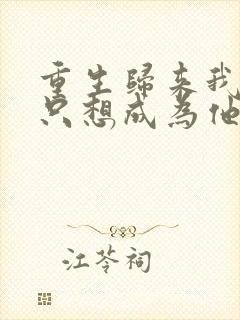 重生歸来我
只想成為他
江苓祠